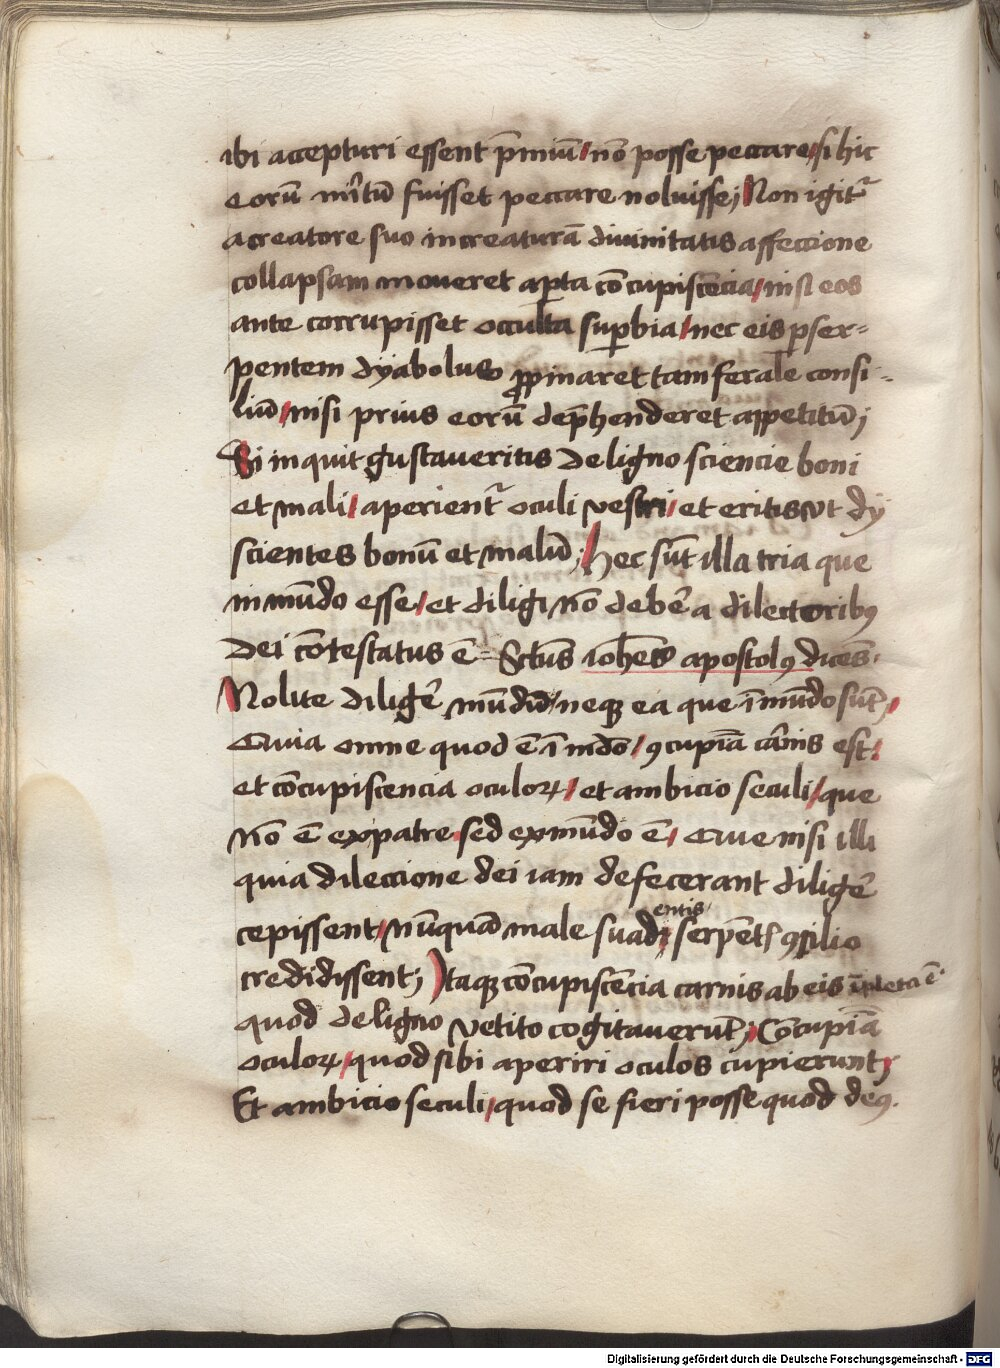 ibi accepturi essent p̄miū/ nō posse peccare/ si hic
eorū m̄itū fuisset peccare noluisse; Non igitᷣ
a creatore suo in creaturā diuinitatis affeccione
collapsam moueret ap̱ta cōcupiscēcia/ nisi eos
ante corrupisset occulta sup̱bia/ nec eis p̱ ser=
pentem dyabolus ꝓpinaret tam ferale consi=
liū/ nisi prius eorū dep̄henderet appetitū;
Si inquit gustaueritis de ligno sciencie boni
et mali/ aperientᷣ oculi vestri/ et eritis vt dÿ
scientes bonū et malū; Hec sūt illa tria que
in mūdo esse/ et diligi nō debe᷑ a dilectoribꝰ
dei cōtestatus ē= Sctūs ioh̄es apostolꝰ dicēs.
Nolite dilige᷑ mūdū/ neqꝫ ea que ī mūdo sūt/
Quia omne quod ē ī mdō/ ꝯcupīa cārnis est/
et cōcupiscencia oculoꝝ/ et ambicio seculi/ que
nō ē ex patre sed ex mūdo ē/ Que nisi illi
quia dileccione dei iam defecerant dilige᷑
cepissent/ nūquā male suadentis serpētꝭ ꝯsilio
credidissent; Itaqꝫ cōcupiscēcia carnis ab eis īpleta ē
quod de ligno vetito cogitauerūt; Cōcupīa
oculoꝝ/ quod sibi aperiri oculos cupierunt;
Et ambicio seculi/ quod se fieri posse quod deꝰ.
Digitalisierung gefördert durch die Deutsche Forschungsgemeinschaft - DFG